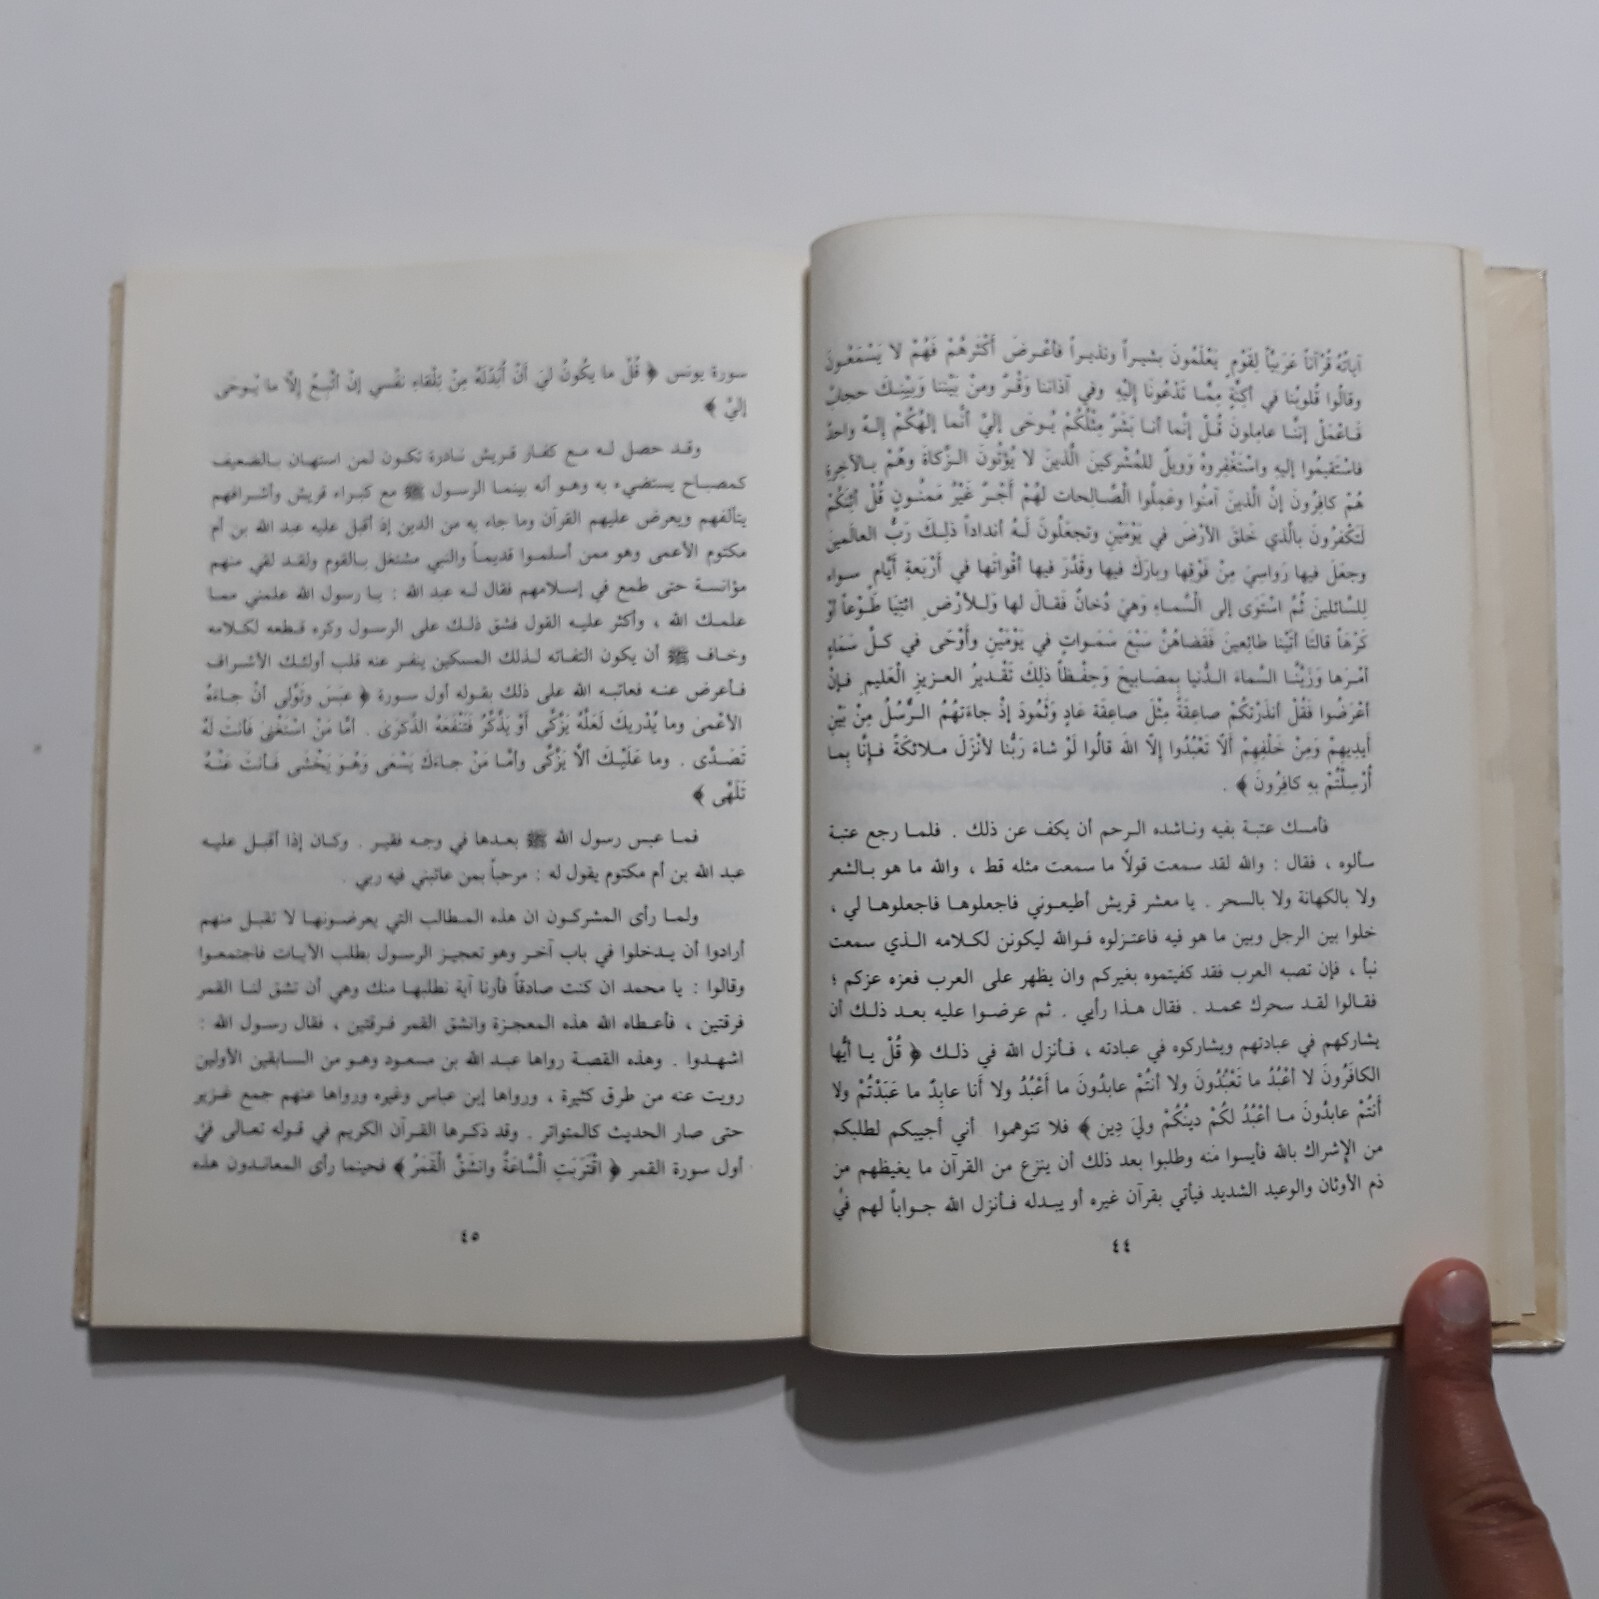 آياتُهُ قُرْآناً عَرَبيّاً لِقَوْمٍ يَعْلَمُونَ بشيراً ونذيراً فأعْرضَ أَكْثَرُهُمْ فَهُمْ لا يَسْمَعُونَ
وقالُوا قُلوبُنا في أكِنَّةٍ مِمَّا تَدْعُونَا إلَيْهِ وفي آذاننا وَقْرٌ ومنْ بَيْننا وَبَيْنِكَ حجابٌ
فَاعْمَلْ إننَّا عامِلونَ قُلْ إنَّما أنا بَشَرٌ مِثْلُكُمْ يُوحَى إليَّ أنَّما إلهُكُمْ إلهٌ واحدٌ
فاستَقيمُوا إليهِ واسْتَغْفِروهُ وَوَيلٌ للمُشْركينَ الَّذينَ لا يُؤْتُونَ الزَّكاةَ وهُمْ بالآخِرةِ
هُمْ كافِرُونَ إنَّ الَّذينَ آمنُوا وعَمِلُوا الصَّالِحات لَهُمْ أَجْرٌ غَيْرُ مَمْنُونٍ قُلْ أئِنَّكُمْ
لَتَكْفرُونَ بالَّذي خَلقَ الأرْضَ في يَوْمَيْنِ وتجعَلُونَ لَهُ أنداداً ذلِكَ رَبُّ العالَمينَ
وجعَلَ فيها رَواسِيَ مِنْ فَوْقِها وبارَكَ فيها وقدَّرَ فيها أقْواتَها في أرْبَعةِ أيَّام سواء
لِلسَّائلينَ ثُمَّ اسْتَوَى إلى السَّماءِ وَهيَ دُخانٌ فَقالَ لها وَلِلأرْضِ ائتِيَا طَوْعاً أوْ
كَرْهاً قالتَا أتَيْنا طائعِينَ فَقَضاهُنَّ سَبْعَ سَمَواتٍ في يَوْمَيْنِ وأَوْحَى في كلِّ سَمَاءٍ
أمْرَها وَزَيَّنَّا السَّماءَ الدُّنيا بِمصَابيحَ وَحِفْظاً ذلِكَ تَقْديرُ العزيزِ الْعَليمِ فإنْ
أعْرَضُوا فَقُلْ أنذَرْتكُمْ صاعِقَةً مِثْلَ صاعِقَة عَادٍ وَثَمُودَ إذْ جاءَتهُم الرُّسُلُ مِنْ بَيْنِ
أيدِيهِمْ وَمِنْ خَلْفِهِمْ ألَّا تَعْبُدُوا إلَّا الله قالُوا لَوْ شاءَ رَبُّنا لأنْزَلَ ملائكَةً فإنَّا بِمَا
أُرْسِلْتُمْ بهِ كافِرُونَ ﴾ .
فأمسك عتبة بفيه وناشده الرحم أن يكف عن ذلك . فلما رجع عتبة
سألوه ، فقال : والله لقد سمعت قولاً ما سمعت مثله قط ، والله ما هو بالشعر
ولا بالكهانة ولا بالسحر . يا معشر قريش أطيعوني فاجعلوها فاجعلوها لي ،
خلوا بين الرجل وبين ما هو فيه فاعتزلوه فوالله ليكونن لكلامه الذي سمعت
نبأ ، فإن تصبه العرب فقد كفيتموه بغيركم وان يظهر على العرب فعزه عزكم ؛
فقالوا لقد سحرك محمد . فقال هذا رأيي . ثم عرضوا عليه بعد ذلك أن
يشاركهم في عبادتهم ويشاركوه في عبادته ، فأنزل الله في ذلك ﴿ قُلْ يا أيُّها
الكافَرُونَ لا أعْبُدُ ما تَعْبُدُونَ ولا أنتُمْ عابدُونَ ما أَعْبُدُ ولا أَنا عابِدٌ ما عَبَدْتُمْ ولا
أَنتُمْ عابدُونَ ما أعْبُدُ لكُمْ دينُكُمْ وليَ دِين ﴾ فلا تتوهموا أني أجيبكم لطلبكم
من الإشراك بالله فأيسوا منه وطلبوا بعد ذلك أن ينزع من القرآن ما يغيظهم من
ذم الأوثان والوعيد الشديد فيأتي بقرآن غيره أو يبدله فأنزل الله جواباً لهم في
٤٤
سورة يونس ﴿ قُلْ ما يكُونُ ليَ أنْ أُبَدِّلَهُ مِنْ تِلْقاءِ نَفْسي إنْ أتَّبعُ إلَّا ما يُوحَى
إليَّ ﴾
وقد حصل له مع كفار قريش نادرة تكون لمن استهان بالضعيف
كمصباح يستضيء به وهو أنه بينما الرسول ﷺ مع كبراء قريش وأشرافهم
يتألفهم ويعرض عليهم القرآن وما جاء به من الدين إذ أقبل عليه عبد الله بن أم
مكتوم الأعمى وهو ممن أسلموا قديماً والنبي مشتغل بالقوم ولقد لقي منهم
مؤانسة حتى طمع في إسلامهم فقال له عبد الله : يا رسول الله علمني مما
علمك الله ، وأكثر عليه القول فشق ذلك على الرسول وكره قطعه لكلامه
وخاف ﷺ أن يكون التفاته لذلك المسكين ينفر عنه قلب أولئك الأشراف
فأعرض عنه فعاتبه الله على ذلك بقوله أول سورة ﴿ عبَسَ وتَوَّلى أنْ جاءَهُ
الأعْمىَ وما يُدْريكَ لَعلَّهُ يَزَّكَّى أوْ يَذَّكَّرُ فَتَنْفَعَهُ الذِّكرَى . أمَّا مَنْ اسْتَغْنىَ فأنتَ لَهُ
تَصَدَّى . وما عَلَيْكَ ألَّا يَزَّكَّى وأمَّا مَنْ جاءَكَ يَسْعَى وَهُوَ يَخْشَى فَأنتَ عَنْهُ
تَلَهَّى ﴾
فما عبس رسول الله ﷺ بعدها في وجه فقير . وكان إذا أقبل عليه
عبد الله بن أم مكتوم يقول له : مرحباً بمن عاتبني فيه ربي .
ولما رأى المشركون ان هذه المطالب التي يعرضونها لا تقبل منهم
أرادوا أن يدخلوا في باب آخر وهو تعجيز الرسول بطلب الآيات فاجتمعوا
وقالوا : يا محمد ان كنت صادقاً فأرنا آية نطلبها منك وهي أن تشق لنا القمر
فرقتين ، فأعطاه الله هذه المعجزة وانشق القمر فرقتين ، فقال رسول الله :
اشهدوا . وهذه القصة رواها عبد الله بن مسعود وهو من السابقين الأولين
رويت عنه من طرق كثيرة ، ورواها إبن عباس وغيره ورواها عنهم جمع غزير
حتى صار الحديث كالمتواتر . وقد ذكرها القرآن الكريم في قوله تعالى في
أول سورة القمر ﴿ اقْتَرَبَتِ السَّاعَةُ وانشَقَّ الْقَمَرُ ﴾ فحينما رأى المعاندون هذه
٤٥